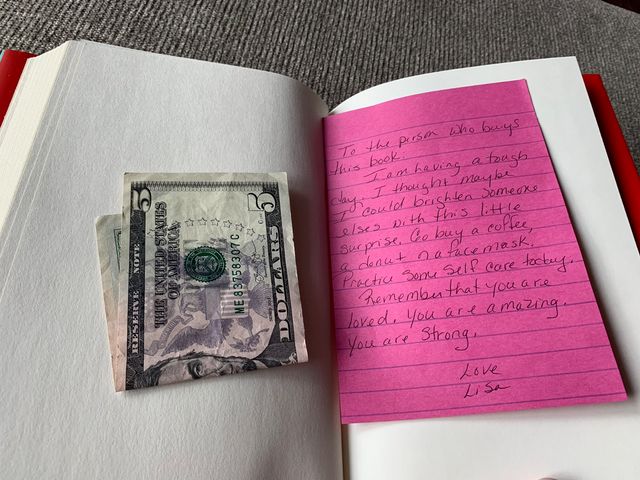 5
5
RESERVE NOTE
THE UNITED STATES
OF AMERICA
ME 83058307 C
DOLLARS
To the person who buys
this book:
I am having a tough
day. I thought maybe
I could brighten someone
elses with this little
surprise. Go buy a coffee,
a donut n a face mask.
Practice some self care today.
Remember that you are
loved. You are amazing.
You are strong.
Love
Lisa